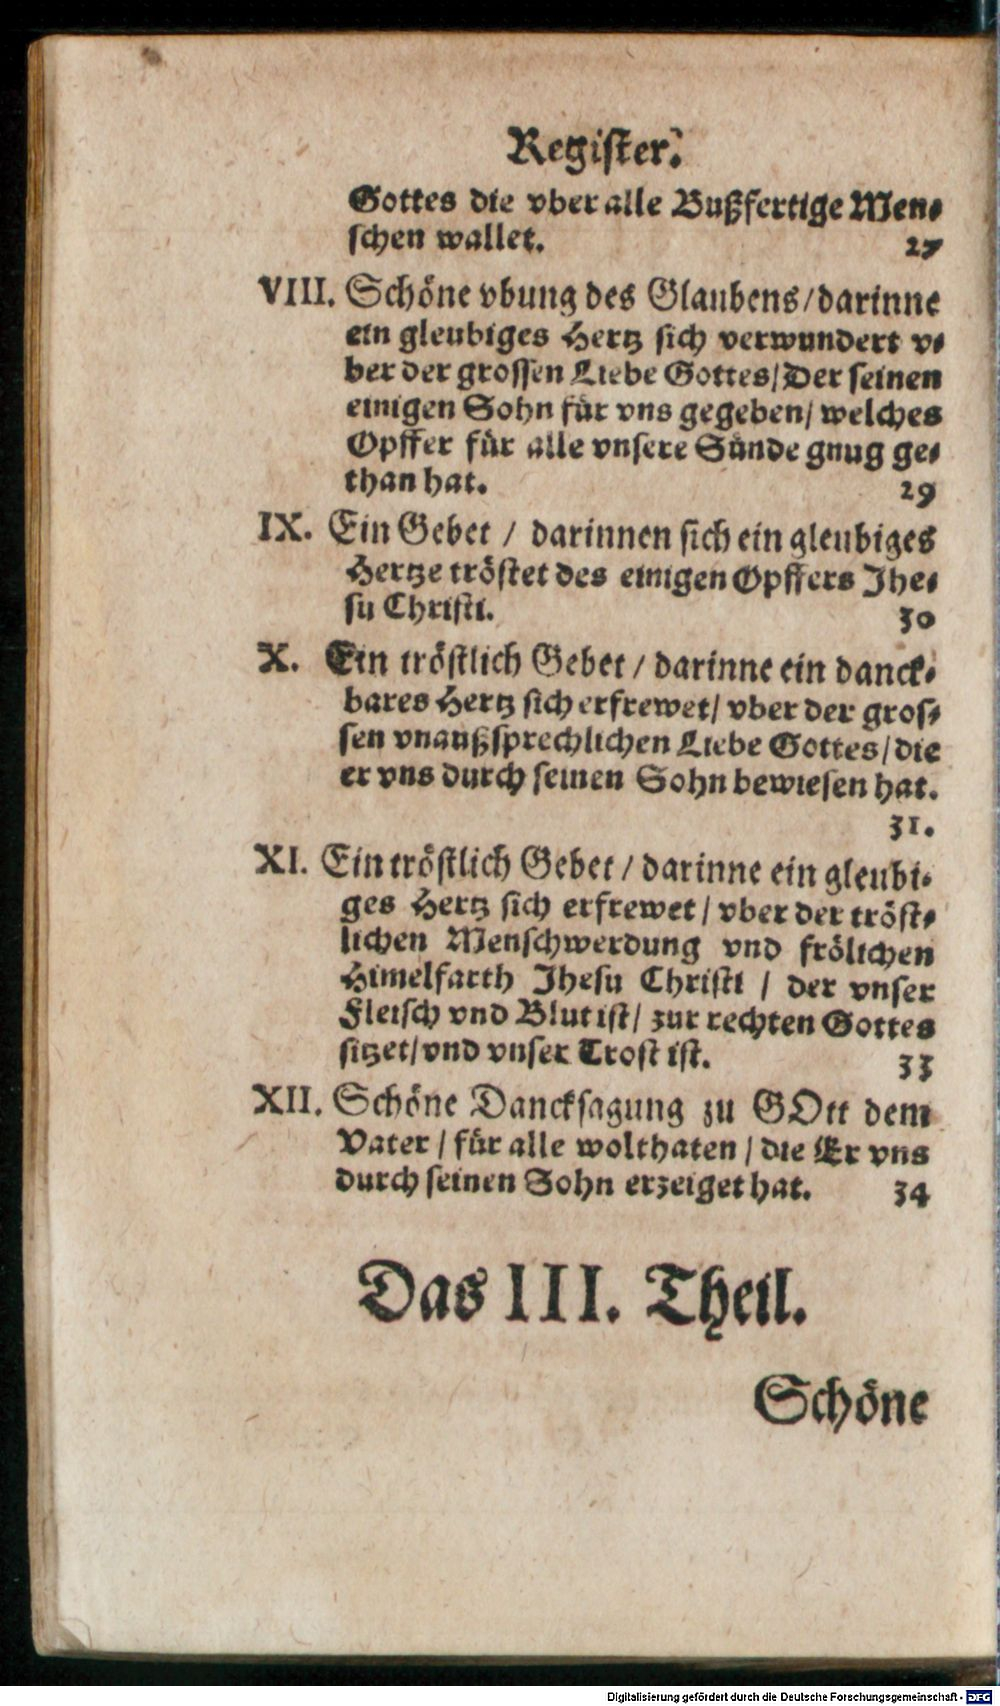 Register.
Gottes die vber alle Bußfertige Men-
schen wallet. 27
VIII. Schöne vbung des Glaubens/darinne
ein gleubiges Hertz sich verwundert v-
ber der grossen Liebe Gottes/Der seinen
einigen Sohn für vns gegeben/ welches
Opffer für alle vnsere Sünde gnug ge-
than hat. 29
IX. Ein Gebet / darinnen sich ein gleubiges
Hertze tröstet des einigen Opffers Jhe-
su Christi. 30
X. Ein tröstlich Gebet / darinne ein danck-
bares Hertz sich erfrewet/ vber der gros-
sen vnaußsprechlichen Liebe Gottes/die
er vns durch seinen Sohn bewiesen hat.
31.
XI. Ein tröstlich Gebet / darinne ein gleubi-
ges Hertz sich erfrewet / vber der tröst-
lichen Menschwerdung vnd frölichen
Himelfarth Jhesu Christi / der vnser
Fleisch vnd Blut ist/ zur rechten Gottes
sitzet/vnd vnser Trost ist. 33
XII. Schöne Dancksagung zu GOtt dem
Vater / für alle wolthaten / die Er vns
durch seinen Sohn erzeiget hat. 34
Das III. Theil.
Schöne
Digitalisierung gefördert durch die Deutsche Forschungsgemeinschaft - DFG